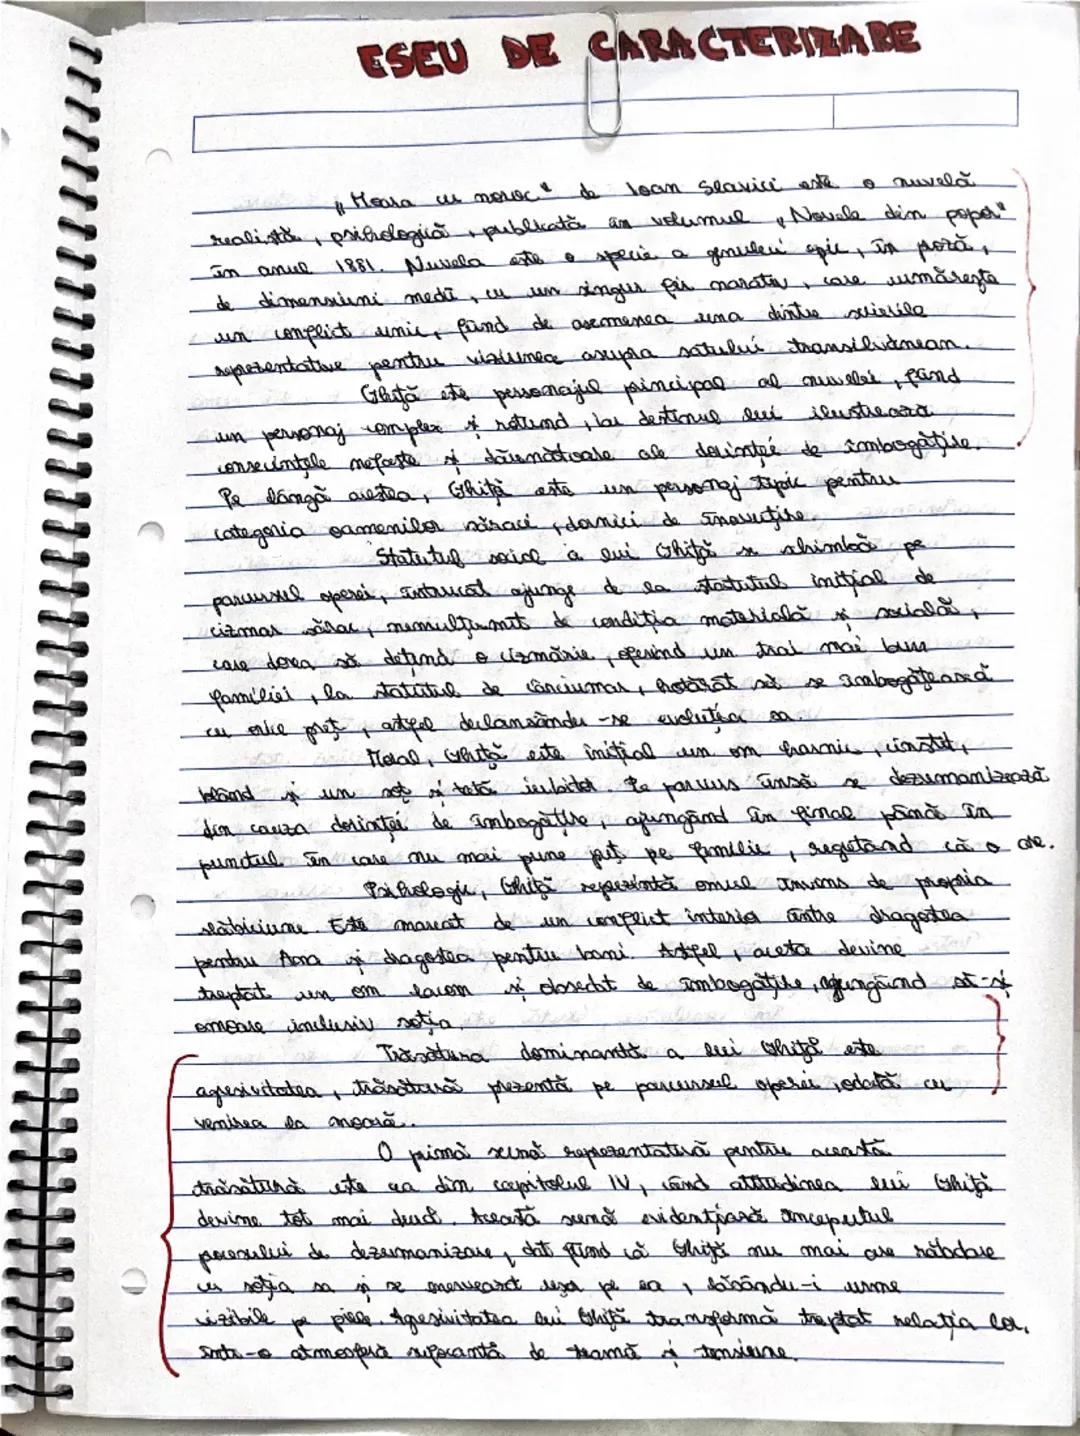 ESEU DE CARACTERIZARE
„Moara cu noroc" de Ioan Slavici este o nuvelă
realistă, psihologică, publicată în volumul „Novele din popor"
în anul 1881. Nuvela este o specie a genului epic, în proză,
de dimensiuni medii, cu un singur fir narativ, care urmărește
un conflict unic, fiind de asemenea una dintre scrierile
reprezentative pentru viziunea asupra satului transilvănean.
Ghiță este personajul principal al nuvelei, fiind
un personaj complex și rotund, iar destinul lui ilustrează
consecințele nefaste și dăunătoare ale dorinței de îmbogățire.
Pe lângă acestea, Ghiță este un personaj tipic pentru
categoria oamenilor săraci, dornici de înavuțire.
Statutul social a lui Ghiță se schimbă pe
parcursul operei, întrucât ajunge de la statutul inițial de
cizmar sărac, nemulțumit de condiția materială și socială,
care dorea să dețină o cizmărie, oferind un trai mai bun
familiei, la statutul de cârciumar, hotărât să se îmbogățească
cu orice preț, astfel declansându-se evoluția sa.
Moral, Ghiță este inițial un om harnic, cinstit,
blând și un soț și tată iubitor. Pe parcurs însă se dezumanizează
din cauza dorinței de îmbogățire, ajungând în final până în
punctul în care nu mai pune preț pe familie, regretând că o are.
Psihologic, Ghiță reprezintă omul învins de propria
slăbiciune. Este marcat de un conflict interior între dragostea
pentru Ana și dragostea pentru bani. Astfel, acesta devine
treptat un om lacom și obsedat de îmbogățire, ajungând să-și
omoare inclusiv soția.
Trăsătura dominantă a lui Ghiță este
agresivitatea, trăsătură prezentă pe parcursul operei, odată cu
venirea la moară.
O primă scenă reprezentativă pentru această
trăsătură este cea din capitolul IV, când attitudinea lui Ghiță
devine tot mai dură. Această scenă evidențiază începutul
procesului de dezumanizare, dat fiind că Ghiță nu mai are răbdare
cu soția sa și se enervează ușor pe ea, lăsându-i urme
vizibile pe piele. Agresivitatea lui Ghiță transformă treptat relația lor,
într-o atmosferă sufocantă de teamă și tensiune.